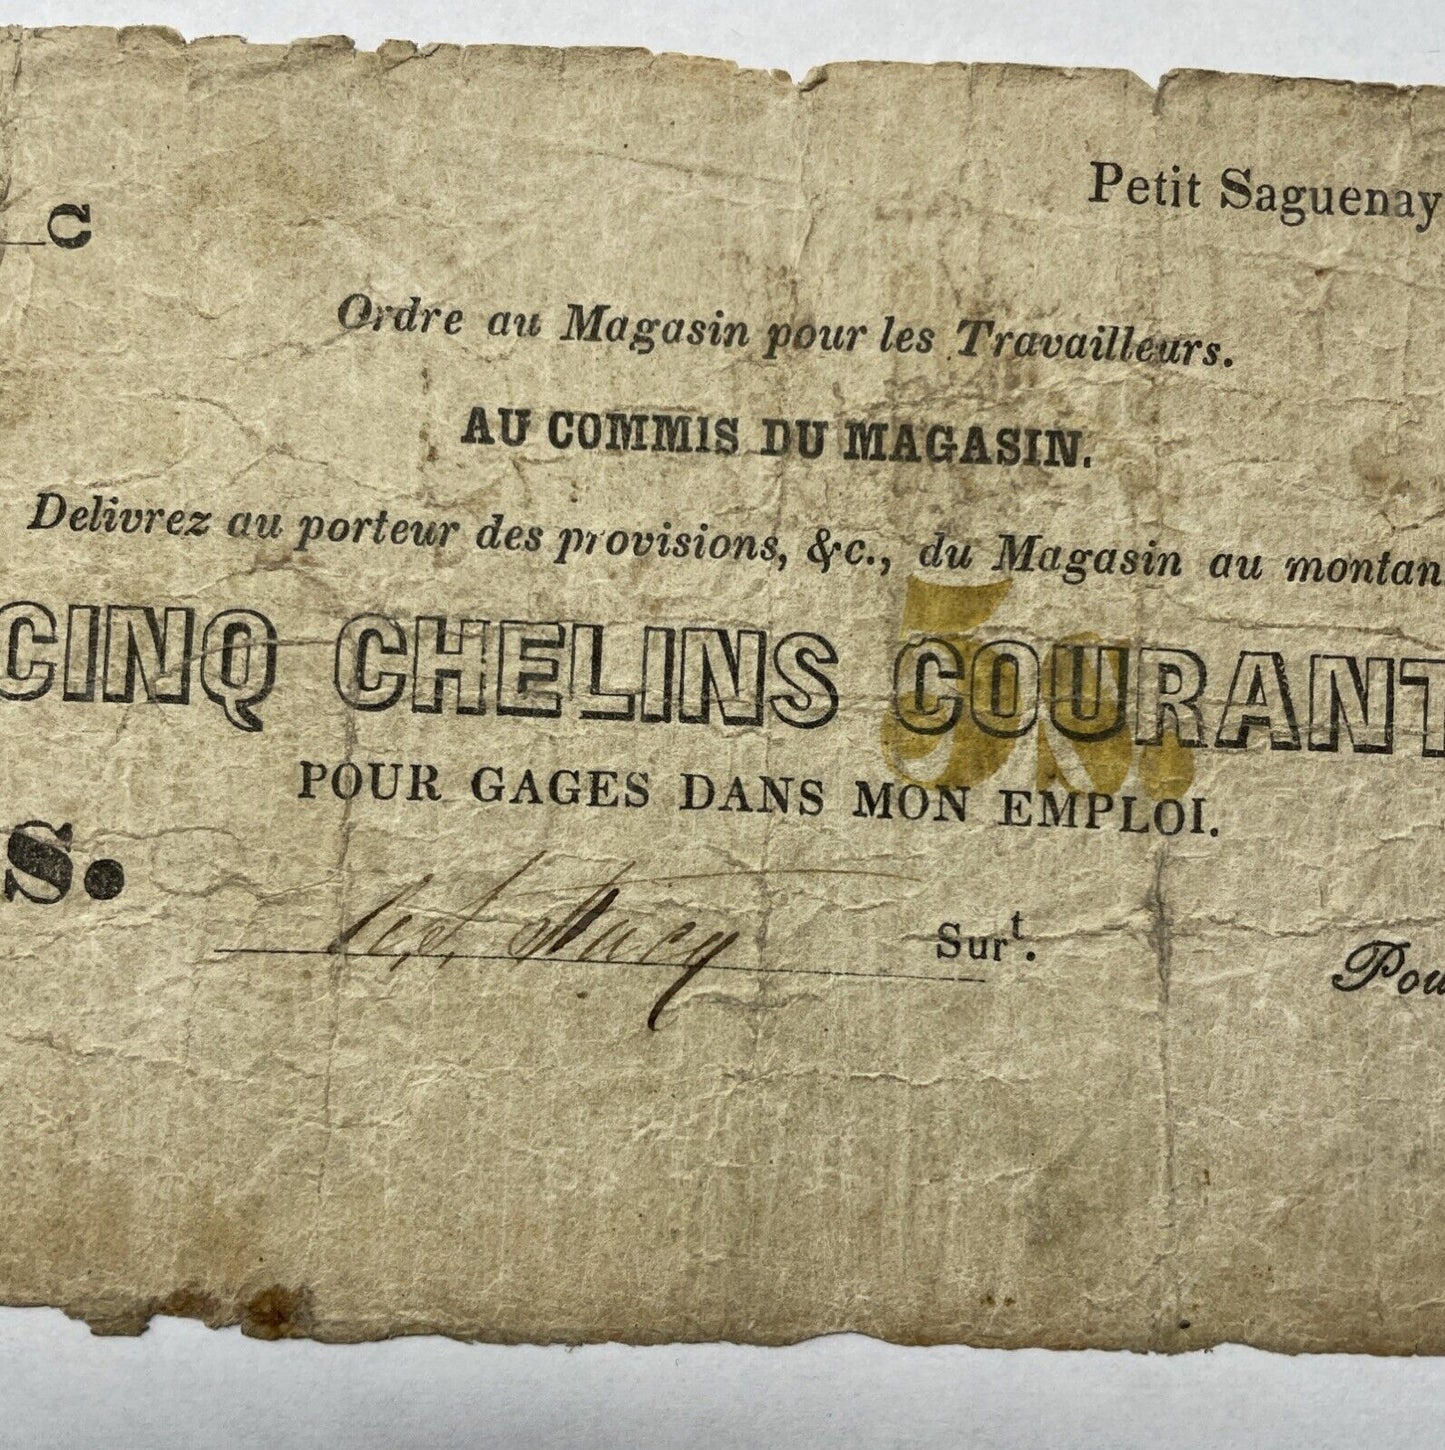 Petit Saguenay
C
Ordre au Magasin pour les Travailleurs.
AU COMMIS DU MAGASIN.
Delivrez au porteur des provisions, &c., du Magasin au montan
CINQ CHELINS COURANT
5s.
POUR GAGES DANS MON EMPLOI.
S.
Surt.
Pou